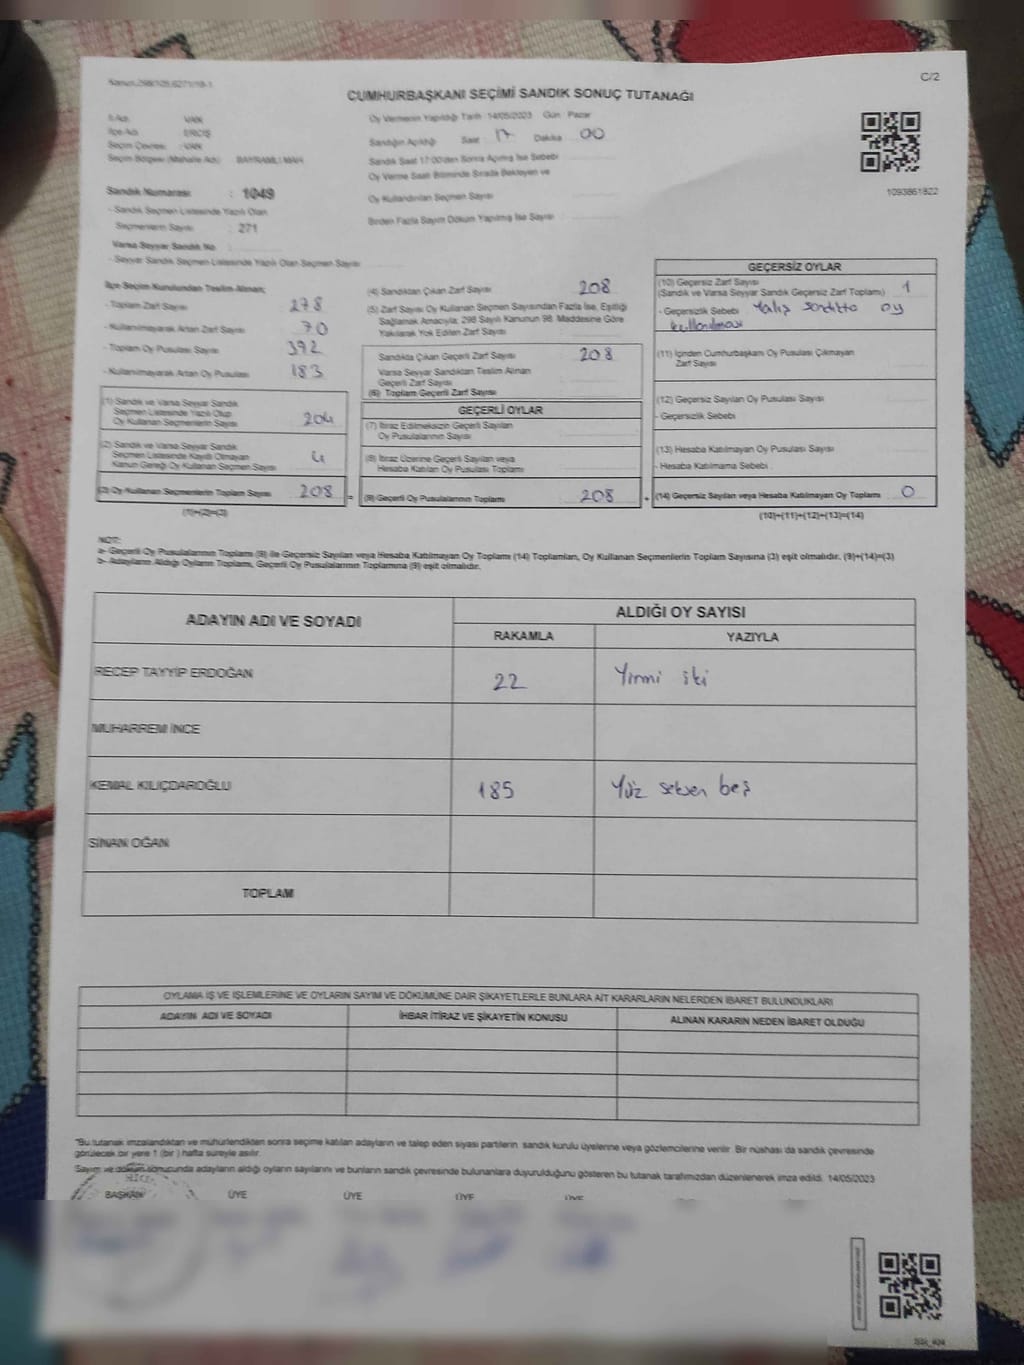 Kanun:298/105,6271/19-1
C/2
CUMHURBAŞKANI SEÇİMİ SANDIK SONUÇ TUTANAĞI
İl Adı : VAN
İlçe Adı : ERCİŞ
Seçim Çevresi : VAN
Seçim Bölgesi (Mahalle Adı) : BAYRAMLI MAH.
Oy Vermenin Yapıldığı Tarih : 14/05/2023 Gün : Pazar
Sandığın Açıldığı Saat : 17 Dakika : 00
Sandık Saat 17:00'den Sonra Açılmış İse Sebebi
Oy Verme Saati Bitiminde Sırada Bekleyen ve
Oy Kullandırılan Seçmen Sayısı
Birden Fazla Sayım Döküm Yapılmış İse Sayısı
1093861822
Sandık Numarası : 1049
- Sandık Seçmen Listesinde Yazılı Olan
Seçmenlerin Sayısı : 271
Varsa Seyyar Sandık No
- Seyyar Sandık Seçmen Listesinde Yazılı Olan Seçmen Sayısı
İlçe Seçim Kurulundan Teslim Alınan;
- Toplam Zarf Sayısı 278
- Kullanılmayarak Artan Zarf Sayısı 70
- Toplam Oy Pusulası Sayısı 392
- Kullanılmayarak Artan Oy Pusulası 183
(1) Sandık ve Varsa Seyyar Sandık
Seçmen Listesinde Yazılı Olup
Oy Kullanan Seçmenlerin Sayısı 204
(2) Sandık ve Varsa Seyyar Sandık
Seçmen Listesinde Kayıtlı Olmayan
Kanun Gereği Oy Kullanan Seçmen Sayısı 4
(3) Oy Kullanan Seçmenlerin Toplam Sayısı 208 =
(1)+(2)=(3)
(4) Sandıktan Çıkan Zarf Sayısı 208
(5) Zarf Sayısı Oy Kullanan Seçmen Sayısından Fazla İse, Eşitliği
Sağlamak Amacıyla; 298 Sayılı Kanunun 98. Maddesine Göre
Yakılarak Yok Edilen Zarf Sayısı
Sandıkta Çıkan Geçerli Zarf Sayısı 208
Varsa Seyyar Sandıktan Teslim Alınan
Geçerli Zarf Sayısı
(6) Toplam Geçerli Zarf Sayısı
GEÇERLİ OYLAR
(7) İtiraz Edilmeksizin Geçerli Sayılan
Oy Pusulalarının Sayısı
(8) İtiraz Üzerine Geçerli Sayılan veya
Hesaba Katılan Oy Pusulası Toplamı
(9) Geçerli Oy Pusulalarının Toplamı 208 +
GEÇERSİZ OYLAR
(10) Geçersiz Zarf Sayısı
(Sandık ve Varsa Seyyar Sandık Geçersiz Zarf Toplamı) 1
- Geçersizlik Sebebi Yalış sandıkta oy
kullanılması
(11) İçinden Cumhurbaşkanı Oy Pusulası Çıkmayan
Zarf Sayısı
(12) Geçersiz Sayılan Oy Pusulası Sayısı
- Geçersizlik Sebebi
(13) Hesaba Katılmayan Oy Pusulası Sayısı
- Hesaba Katılmama Sebebi
(14) Geçersiz Sayılan veya Hesaba Katılmayan Oy Toplamı 0
(10)+(11)+(12)+(13)=(14)
NOT:
a- Geçerli Oy Pusulalarının Toplamı (9) ile Geçersiz Sayılan veya Hesaba Katılmayan Oy Toplamı (14) Toplamları, Oy Kullanan Seçmenlerin Toplam Sayısına (3) eşit olmalıdır. (9)+(14)=(3)
b- Adayların Aldığı Oyların Toplamı, Geçerli Oy Pusulalarının Toplamına (9) eşit olmalıdır.
ADAYIN ADI VE SOYADI
ALDIĞI OY SAYISI
RAKAMLA YAZIYLA
RECEP TAYYİP ERDOĞAN 22 Yirmi iki
MUHARREM İNCE
KEMAL KILIÇDAROĞLU 185 Yüz seksen beş
SİNAN OĞAN
TOPLAM
OYLAMA İŞ VE İŞLEMLERİNE VE OYLARIN SAYIM VE DÖKÜMÜNE DAİR ŞİKAYETLERLE BUNLARA AİT KARARLARIN NELERDEN İBARET BULUNDUKLARI
ADAYIN ADI VE SOYADI İHBAR İTİRAZ VE ŞİKAYETİN KONUSU ALINAN KARARIN NEDEN İBARET OLDUĞU
*Bu tutanak imzalandıktan ve mühürlendikten sonra seçime katılan adayların ve talep eden siyasi partilerin sandık kurulu üyelerine veya gözlemcilerine verilir. Bir nüshası da sandık çevresinde
görülecek bir yere 1 (bir ) hafta süreyle asılır.
Sayım ve döküm sonucunda adayların aldığı oyların sayılarını ve bunların sandık çevresinde bulunanlara duyurulduğunu gösteren bu tutanak tarafımızdan düzenlenerek imza edildi. 14/05/2023
BAŞKAN ÜYE ÜYE ÜYE ÜYE